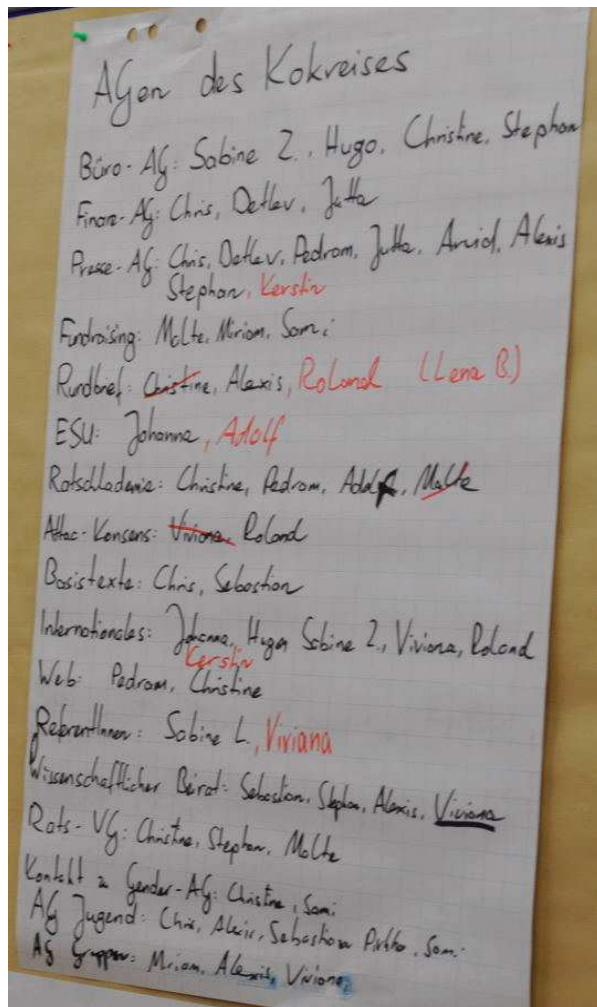 AGen des Kokreises
Büro-AG: Sabine Z., Hugo, Christine, Stephan
Finanz-AG: Chris, Detlev, Jutta
Presse-AG: Chris, Detlev, Pedram, Jutta, Arvid, Alexis
Stephan, Kerstin
Fundraising: Malte, Miriam, Sami
Rundbrief: Christine, Alexis, Roland (Lena B.)
ESU: Johanna, Adolf
Ratschlag: Christine, Pedram, Adolf, Malte
Attac-Konsens: Viviana, Roland
Basistexte: Chris, Sebastian
Internationales: Johanna, Hugo, Sabine Z., Viviana, Roland
Kerstin
Web: Pedram, Christine
ReferentInnen: Sabine L., Viviana
Wissenschaftlicher Beirat: Sebastian, Stephan, Alexis, Viviana
Rats-VG: Christine, Stephan, Malte
Kontakt zu Gender-AG: Christine, Sami
AG Jugend: Chris, Alexis, Sebastian, Sami
AG Gruppen: Miriam, Alexis, Viviana